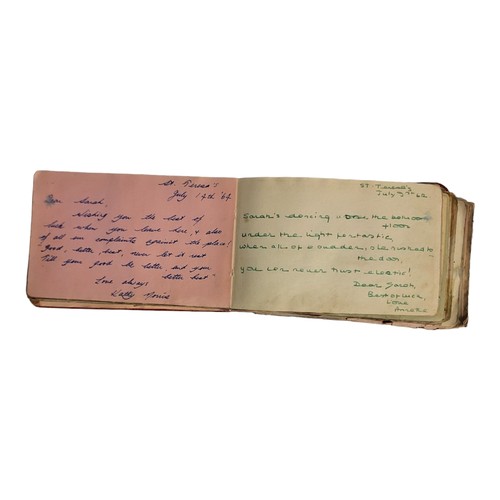 St. Teresa's
July 17th '62
Dear Sarah,
Wishing you the best of
luck when you leave here, & also
of all our complaints against the place!
"Good, better, best, never let it rest
Till your good be better and your
better best"
Love always
Kathy Norris
ST. Teresa's
July 62
Sarah's dancing upon the ballroom
floor
under the light fantastic
when all of a sudden, she rushed to
the door,
you can never trust elastic!
Dear Sarah,
Best of luck,
Love